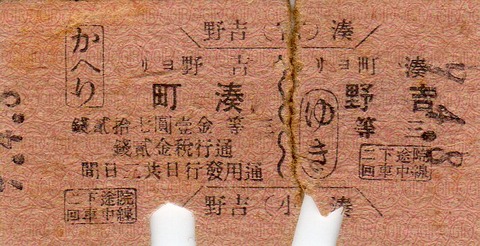 湊(小)吉野
湊町ヨリ
吉野
三等
ゆき
院線中車
途下二回
吉野ヨリ
湊町
かへり
三等金壹圓七拾貳錢
通行稅金貳錢
通用發行日共二日間
院線中車
途下二回
湊(小)吉野